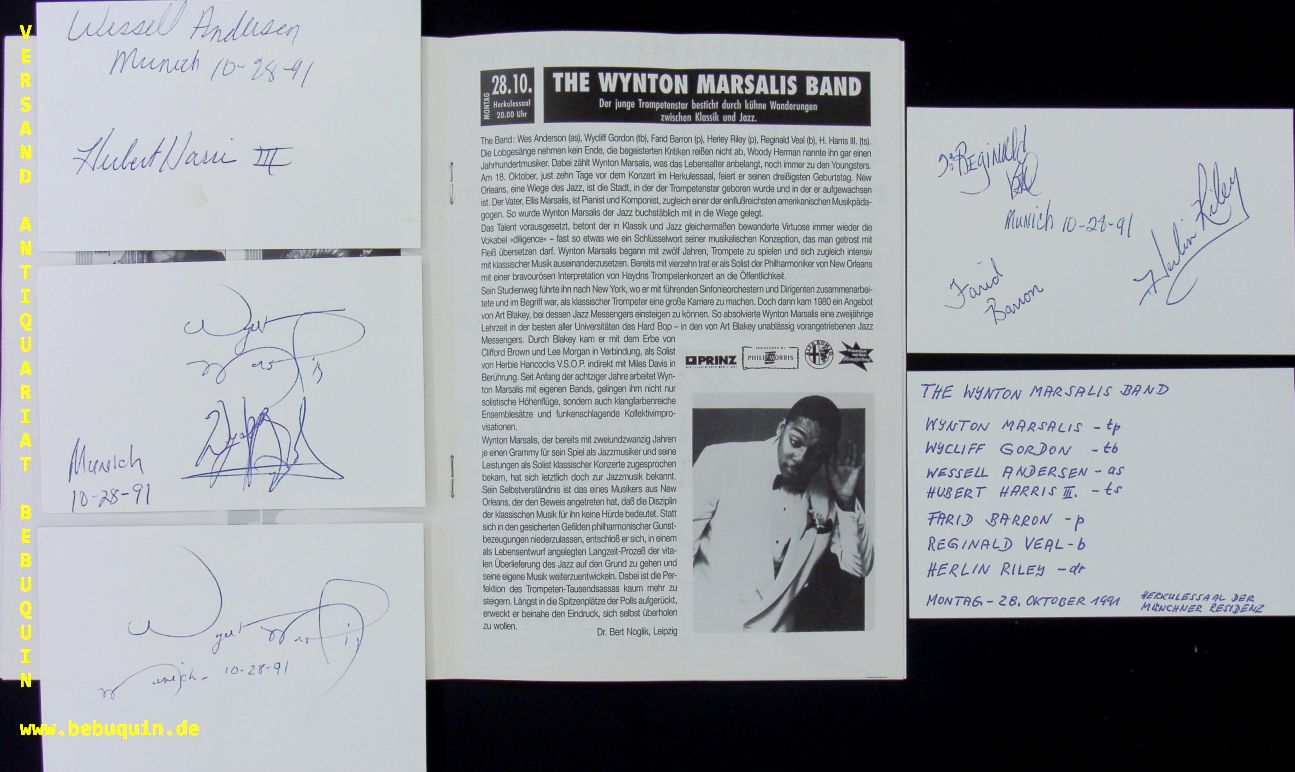 VERSAND ANTIQUARIAT BEBUQUIN
www.bebuquin.de
Wessell Andersen
Munich 10-28-91
Herbert Harris III
Wynton Marsalis
Munich
10-28-91
Wynton Marsalis
Munich. 10-28-91
MONTAG
28.10.
Herkulessaal
20.00 Uhr
THE WYNTON MARSALIS BAND
Der junge Trompetenstar besticht durch kühne Wanderungen
zwischen Klassik und Jazz.
The Band: Wes Anderson (as), Wycliff Gordon (tb), Farid Barron (p), Herley Riley (p), Reginald Veal (b), H. Harris III. (ts).
Die Lobgesänge nehmen kein Ende, die begeisterten Kritiken reißen nicht ab, Woody Herman nannte ihn gar einen
Jahrhundertmusiker. Dabei zählt Wynton Marsalis, was das Lebensalter anbelangt, noch immer zu den Youngsters.
Am 18. Oktober, just zehn Tage vor dem Konzert im Herkulessaal, feiert er seinen dreißigsten Geburtstag. New
Orleans, eine Wiege des Jazz, ist die Stadt, in der der Trompetenstar geboren wurde und in der er aufgewachsen
ist. Der Vater, Ellis Marsalis, ist Pianist und Komponist, zugleich einer der einflußreichsten amerikanischen Musikpäda-
gogen. So wurde Wynton Marsalis der Jazz buchstäblich mit in die Wiege gelegt.
Das Talent vorausgesetzt, betont der in Klassik und Jazz gleichermaßen bewanderte Virtuose immer wieder die
Vokabel »diligence« – fast so etwas wie ein Schlüsselwort seiner musikalischen Konzeption, das man getrost mit
Fleiß übersetzen darf. Wynton Marsalis begann mit zwölf Jahren, Trompete zu spielen und sich zugleich intensiv
mit klassischer Musik auseinanderzusetzen. Bereits mit vierzehn trat er als Solist der Philharmoniker von New Orleans
mit einer bravourösen Interpretation von Haydns Trompetenkonzert an die Öffentlichkeit.
Sein Studienweg führte ihn nach New York, wo er mit führenden Sinfonieorchestern und Dirigenten zusammenarbei-
tete und im Begriff war, als klassischer Trompeter eine große Karriere zu machen. Doch dann kam 1980 ein Angebot
von Art Blakey, bei dessen Jazz Messengers einsteigen zu können. So absolvierte Wynton Marsalis eine zweijährige
Lehrzeit in der besten aller Universitäten des Hard Bop – in den von Art Blakey unablässig vorangetriebenen Jazz
Messengers. Durch Blakey kam er mit dem Erbe von
Clifford Brown und Lee Morgan in Verbindung, als Solist
von Herbie Hancocks V.S.O.P. indirekt mit Miles Davis in
Berührung. Seit Anfang der achtziger Jahre arbeitet Wyn-
ton Marsalis mit eigenen Bands, gelingen ihm nicht nur
solistische Höhenflüge, sondern auch klangfarbenreiche
Ensemblesätze und funkenschlagende Kollektivimpro-
visationen.
Wynton Marsalis, der bereits mit zweiundzwanzig Jahren
je einen Grammy für sein Spiel als Jazzmusiker und seine
Leistungen als Solist klassischer Konzerte zugesprochen
bekam, hat sich letztlich doch zur Jazzmusik bekannt.
Sein Selbstverständnis ist das eines Musikers aus New
Orleans, der den Beweis angetreten hat, daß die Disziplin
der klassischen Musik für ihn keine Hürde bedeutet. Statt
sich in den gesicherten Gefilden philharmonischer Gunst-
bezeugungen niederzulassen, entschloß er sich, in einem
als Lebensentwurf angelegten Langzeit-Prozeß der vita-
len Überlieferung des Jazz auf den Grund zu gehen und
seine eigene Musik weiterzuentwickeln. Dabei ist die Per-
fektion des Trompeten-Tausendsassas kaum mehr zu
steigern. Längst in die Spitzenplätze der Polls aufgerückt,
erweckt er beinahe den Eindruck, sich selbst überholen
zu wollen.
Dr. Bert Noglik, Leipzig
PRINZ
SPONSORED BY
PHILIP MORRIS
Reginald
Veal
Munich 10-28-91
Herlin Riley
Farid
Barron
THE WYNTON MARSALIS BAND
WYNTON MARSALIS – tp
WYCLIFF GORDON – tb
WESSELL ANDERSEN – as
HUBERT HARRIS III. – ts
FARID BARRON – p
REGINALD VEAL – b
HERLIN RILEY – dr
MONTAG – 28. OKTOBER 1991
HERKULESSAAL DER
MÜNCHNER RESIDENZ